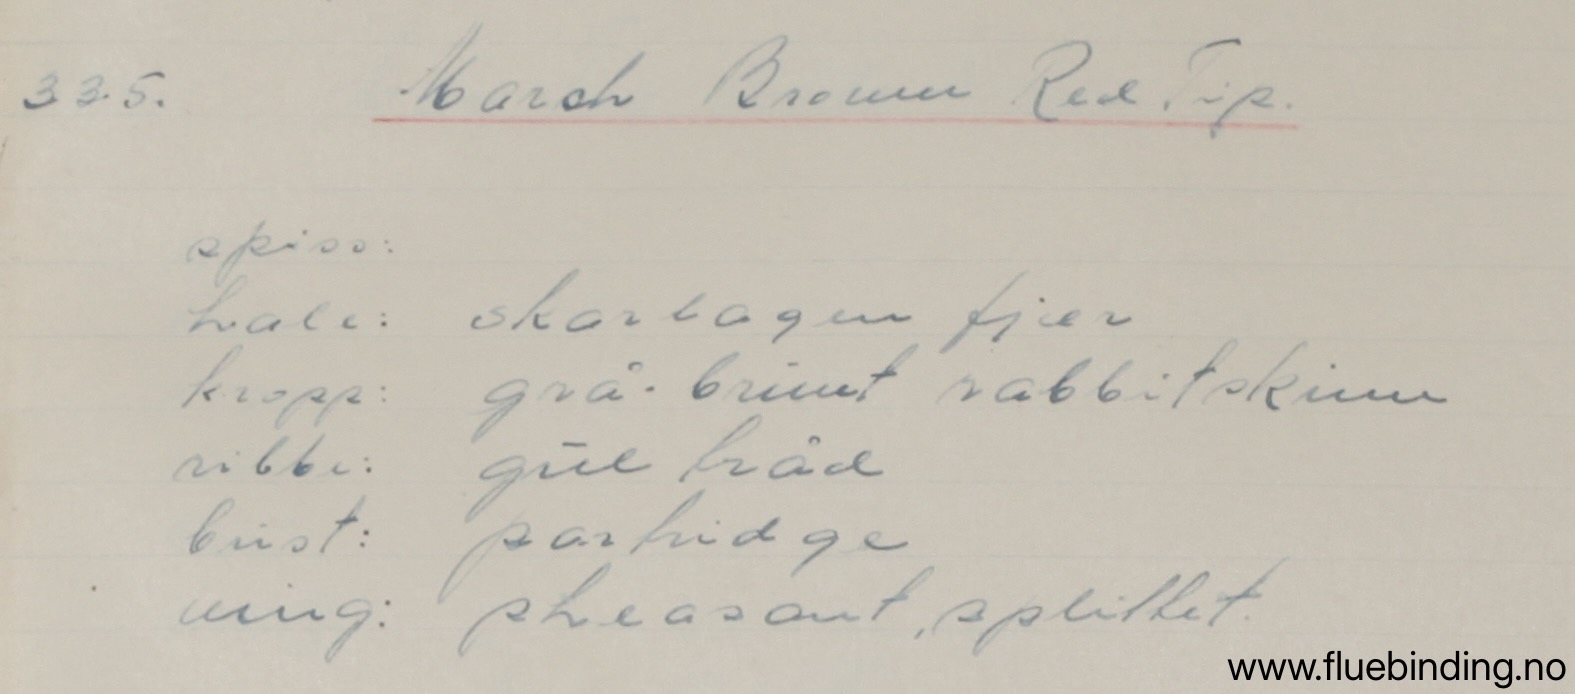 335. March Brown Red Tip.
spiss:
hale: skarlagen fjær
kropp: grå-brunt rabbitskinn
ribbe: gul tråd
bust: partridge
ving: pheasant, splittet.
www.fluebinding.no